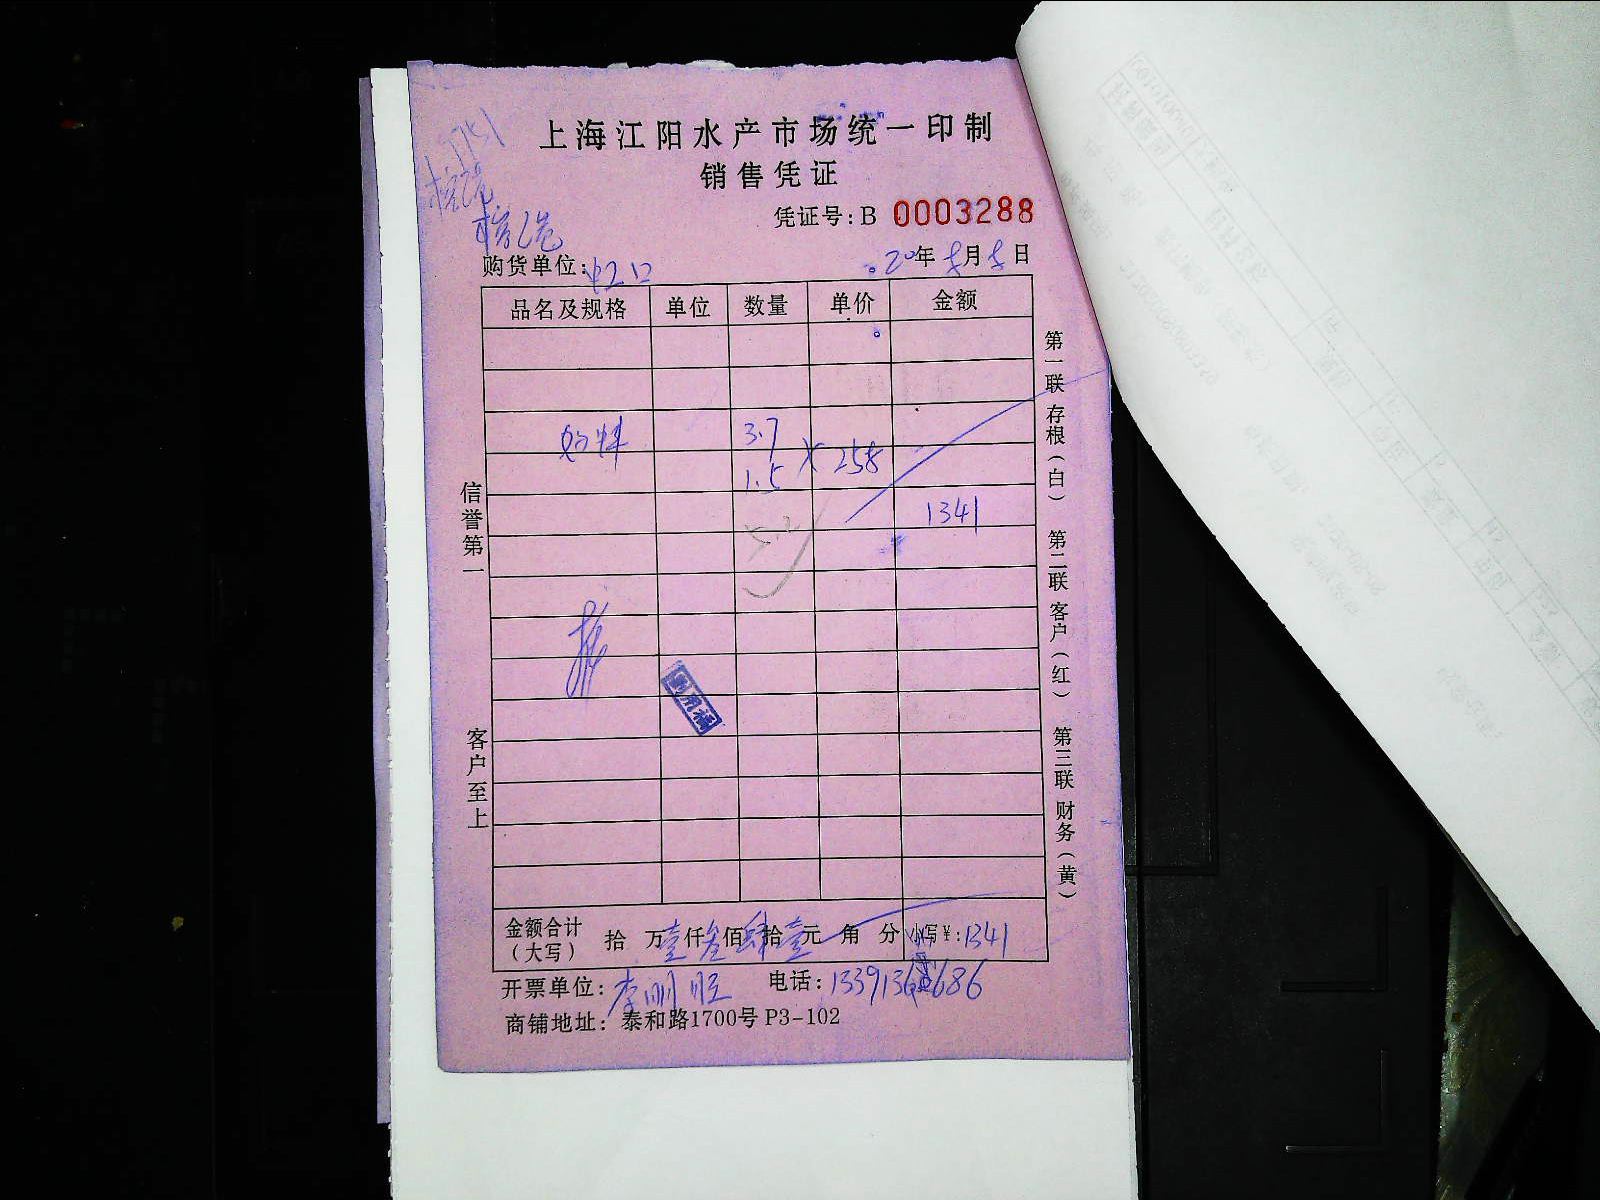 上海江阳水产市场统一印制
销售凭证
凭证号:B 0003288
购货单位:虹口
20年5月5日
品名及规格 单位 数量 单价 金额
3.7
1.5 × 258
1341
5.2
信誉第一
客户至上
第一联 存根(白) 第二联 客户(红) 第三联 财务(黄)
金额合计(大写) 拾 万壹仟叁佰肆拾壹元 角 分 小写¥:1341
开票单位:李刚旺 电话:
商铺地址:泰和路1700号 P3-102